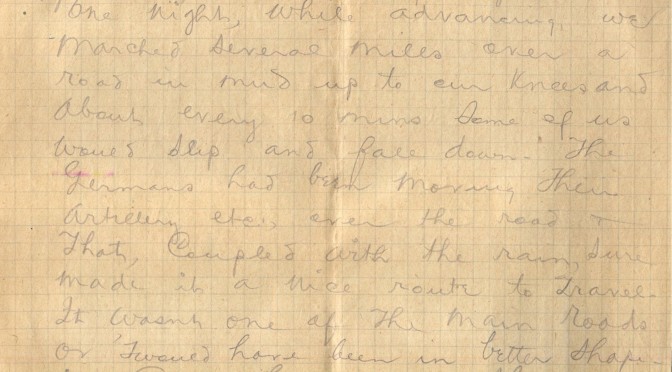 One night, while advancing, we
Marched several miles over a
road in mud up to our knees and
About every 10 mins some of us
would slip and fall down. The
Germans had been moving their
Artillery etc. over the road —
That, Coupled with the rain, sure
made it a nice route to travel.
It wasnt one of the main roads
or 'twould have been in better shape.